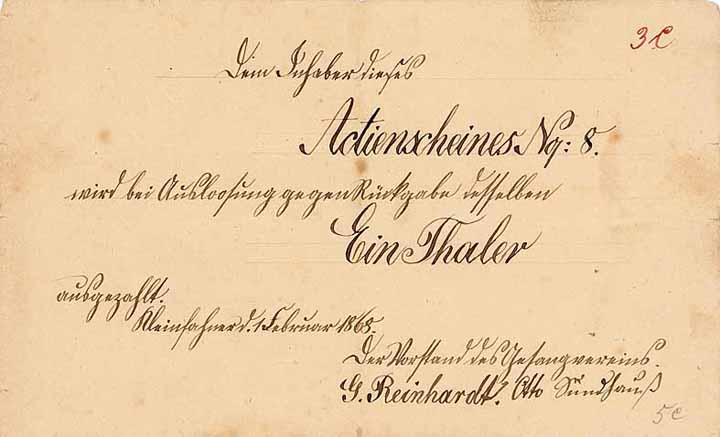 3 C
Dem Inhaber dieses
Actienscheines No: 8.
wird bei Ausloosung gegen Rückgabe desselben
Ein Thaler
ausgezahlt.
Kleinfahner d. 1 Februar 1868.
Der Vorstand des Gesangvereins.
G. Reinhardt. Otto Sündhauß
5 c